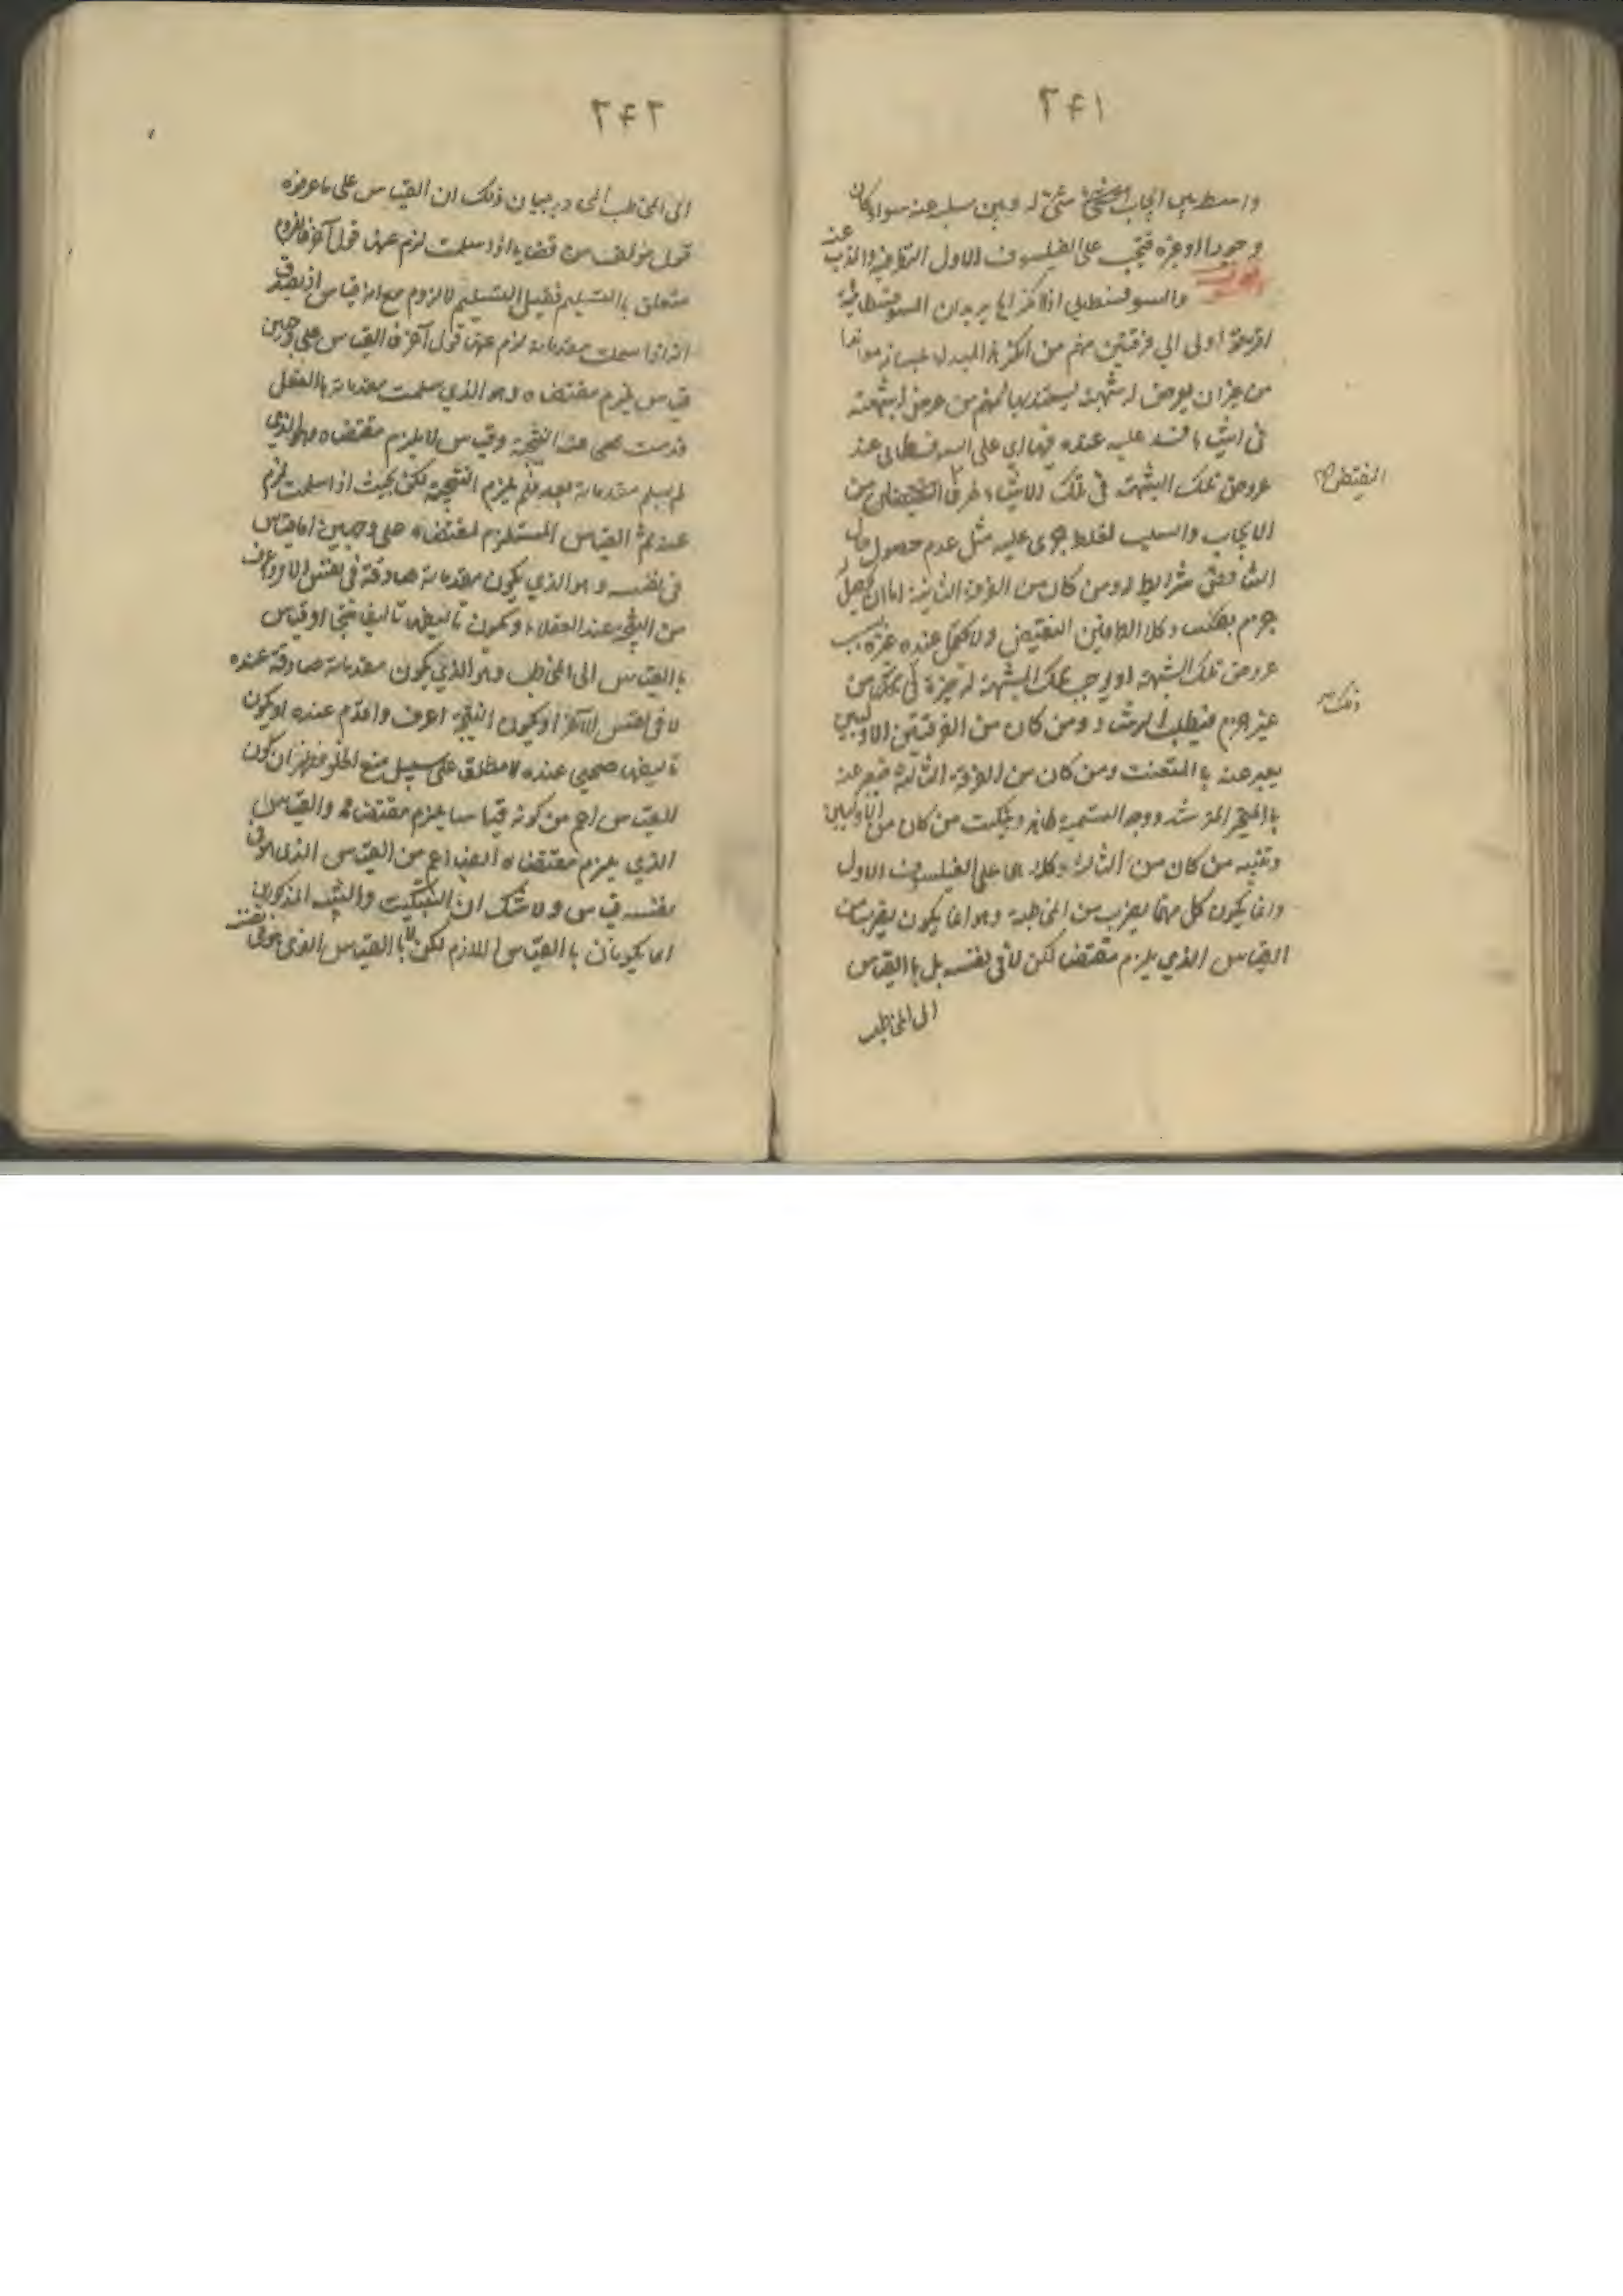 ٢٤١
واسطة بين ايجاب شئ له وبين سلبه عنه سواء كان
وجودا او غيره فيجب على الفيلسوف الاول
والسوفسطائي اذا انكر انما يريد ان السوفسطائية
قسمة اولى الى فرقتين منهم من انكر هذا المبدء بلسانه
من غير ان يعرض له شبهة يعتقد بها ومنهم من عرض له شبهة
في اشياء فسد عليه عنده
عروض تلك الشبهة في تلك الاشياء طرفا النقيض من
النقيض
الايجاب والسلب لغلط جرى عليه مثل عدم حصول حال
التناقض وشرايط له ومن كان من الفرقة الثانية اما ان يحصل
جزم بطلب وكلا الطرفين النقيض ولا يحتمل عنده غيره بسبب
عروض تلك الشبهة او يوجب تلك الشبهة له حيرة في ذلك من
ذلك
غير جزم فيطلب الرشاد ومن كان من الفرقتين الاوليين
يعبر عنه بالمتعنت ومن كان من الفرقة الثالثة فيعبر عنه
بالمتحير المسترشد ووجه التسمية ظاهر وتبكيت من كان من الاوليين
وتنبيه من كان من الثالثة وكلاهما على الفيلسوف الاول
وانما يكون كل منهما بضرب من المخاطبة وهو انما يكون بضرب من
القياس الذي يلزم مقتضاه لكن لا في نفسه بل بالقياس
الى المخاطب
٢٤٢
الى المخاطب الخ وبيان ذلك ان القياس على ما عرفوه
قول مؤلف من قضايا اذا سلمت لزم عنها قول آخر فاللزوم
متعلق بالتسليم فقبل التسليم لا لزوم مع انه قياس اذ يصدق
انه اذا سلمت مقدماته لزم عنها قول آخر فالقياس على وجهين
قياس يلزم مقتضاه وهو الذي سلمت مقدماته بالفعل
عنه النتيجة وقياس لا يلزم مقتضاه وهو الذي
لم يسلم مقدماته بعد فلم يلزم النتيجة لكن بحيث اذا سلمت لزم
عنه ثم القياس المستلزم لمقتضاه على وجهين اما قياس
في نفسه وهو الذي يكون مقدماته صادقة في نفس الامر واعرف
من النتيجة عند العقلاء ويكون تأليفه تأليف منتج او قياس
بالقياس الى المخاطب وهو الذي يكون مقدماته صادقة عنده
لا في نفس الامر او يكون النتيجة اعرف واقدم عنده او يكون
تأليفه صحيحا عنده لا مطلقا على سبيل منع الخلو فظهر ان كون
القياس اعم من كونه قياسا يلزم مقتضاه والقياس
الذي يلزم مقتضاه ايضا اعم من القياس الذي هو في
نفسه قياس ولا شك ان التبكيت والتنبيه المذكورين
انما يكونان بالقياس اللازم لكن لا بالقياس الذي هو في نفسه